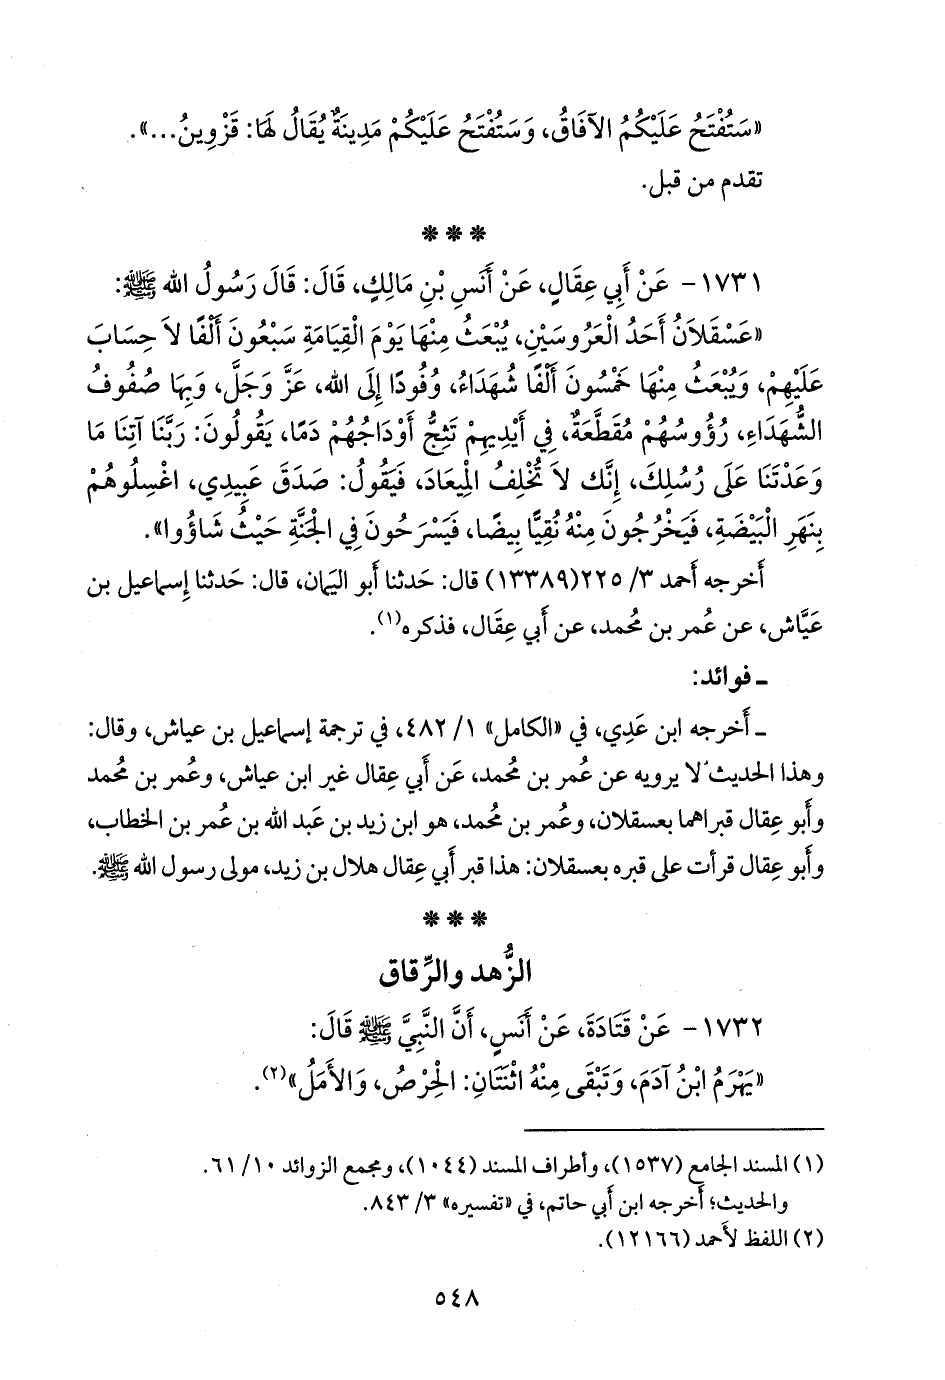 «سَتُفْتَحُ عَلَيْكُمُ الآفَاقُ، وَسَتُفْتَحُ عَلَيْكُمْ مَدِينَةٌ يُقَالُ لَهَا: قَزْوِينُ...».
تقدم من قبل.
* * *
١٧٣١- عَنْ أَبِي عِقَالٍ، عَنْ أَنَسِ بْنِ مَالِكٍ، قَالَ: قَالَ رَسُولُ الله ﷺ:
«عَسْقَلاَنُ أَحَدُ الْعَرُوسَيْنِ، يُبْعَثُ مِنْهَا يَوْمَ الْقِيَامَةِ سَبْعُونَ أَلْفًا لاَ حِسَابَ
عَلَيْهِمْ، وَيُبْعَثُ مِنْهَا خَمْسُونَ أَلْفًا شُهَدَاءُ، وُفُودًا إِلَى الله، عَزَّ وَجَلَّ، وَبِهَا صُفُوفُ
الشُّهَدَاءِ، رُؤُوسُهُمْ مُقَطَّعَةٌ، فِي أَيْدِيهِمْ تَثِجُّ أَوْدَاجُهُمْ دَمًا، يَقُولُونَ: رَبَّنَا آتِنَا مَا
وَعَدْتَنَا عَلَى رُسُلِكَ، إِنَّك لاَ تُخْلِفُ الْمِيعَادَ، فَيَقُولُ: صَدَقَ عَبِيدِي، اغْسِلُوهُمْ
بِنَهَرِ الْبَيْضَةِ، فَيَخْرُجُونَ مِنْهُ نُقِيًّا بِيضًا، فَيَسْرَحُونَ فِي الْجَنَّةِ حَيْثُ شَاؤُوا».
أَخرجه أَحمد ٣/ ٢٢٥(١٣٣٨٩) قال: حَدثنا أَبو اليَمان، قال: حَدثنا إِسماعيل بن
عَيَّاش، عن عُمر بن مُحمد، عن أَبي عِقَال، فذكره(١).
ـ فوائد:
ـ أَخرجه ابن عَدِي، في «الكامل» ١/ ٤٨٢، في ترجمة إسماعيل بن عياش، وقال:
وهذا الحديث لا يرويه عن عُمر بن مُحمد، عَن أَبي عِقال غير ابن عياش، وعُمر بن مُحمد
وأَبو عِقال قبراهما بعسقلان، وعُمر بن مُحمد، هو ابن زيد بن عَبد الله بن عُمر بن الخطاب،
وأَبو عِقال قرأت على قبره بعسقلان: هذا قبر أَبي عِقال هلال بن زيد، مولى رسول الله ﷺ.
* * *
الزُّهد والرِّقاق
١٧٣٢- عَنْ قَتَادَةَ، عَنْ أَنَسٍ، أَنَّ النَّبِيَّ ﷺ قَالَ:
«يَهْرَمُ ابْنُ آدَمَ، وَتَبْقَى مِنْهُ اثْنَتَانِ: الْحِرْصُ، وَالأَمَلُ»(٢).
(١) المسند الجامع (١٥٣٧)، وأطراف المسند (١٠٤٤)، ومجمع الزوائد ١٠/ ٦١.
والحديث؛ أَخرجه ابن أَبي حاتم، في «تفسيره» ٣/ ٨٤٣.
(٢) اللفظ لأَحمد (١٢١٦٦).
٥٤٨